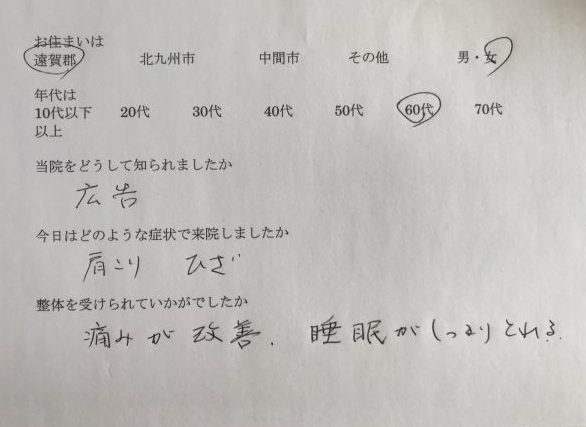 お住まいは
遠賀郡 北九州市 中間市 その他 男・女
年代は
10代以下 20代 30代 40代 50代 60代 70代
以上
当院をどうして知られましたか
広告
今日はどのような症状で来院しましたか
肩こり ひざ
整体を受けられていかがでしたか
痛みが改善. 睡眠がしっかりとれる.